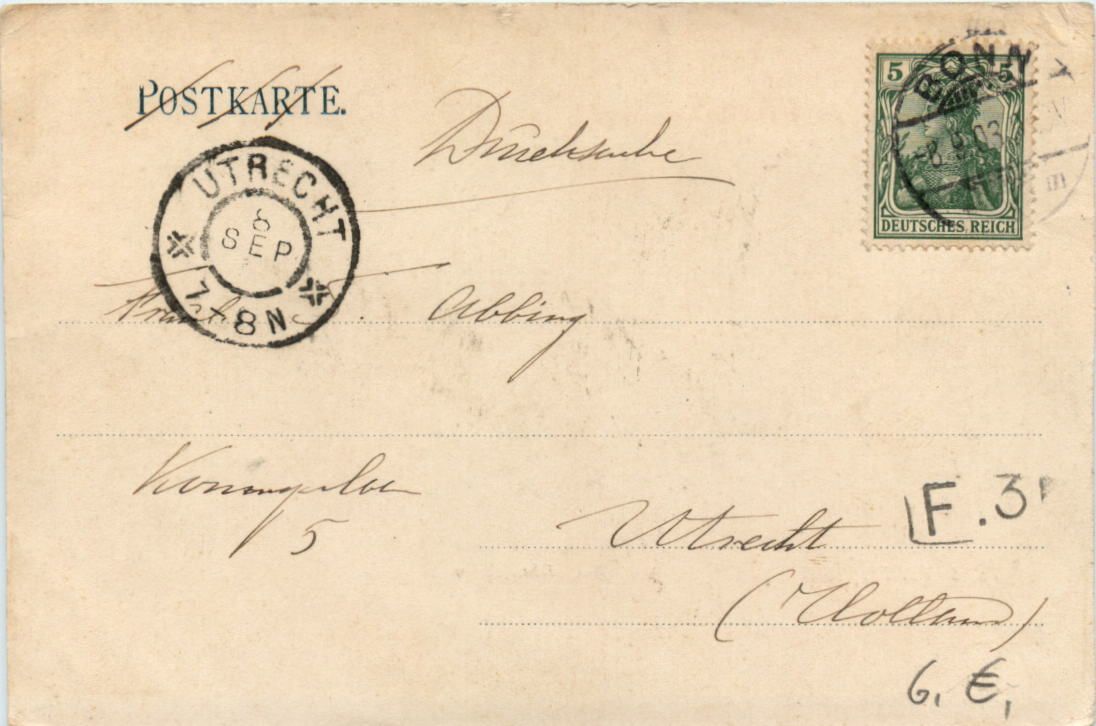 POSTKARTE.
Drucksache
5 5
DEUTSCHES REICH
BONN
-8.9.03
UTRECHT
8
SEP
7-8N
Abbing
5
Utrecht
(Holland)
F.3
6, €,